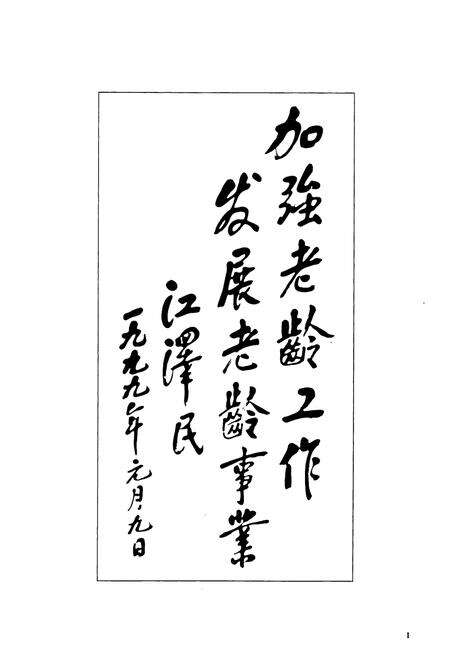 加強老齡工作
发展老齡事業
江澤民
一九九九年元月九日
1